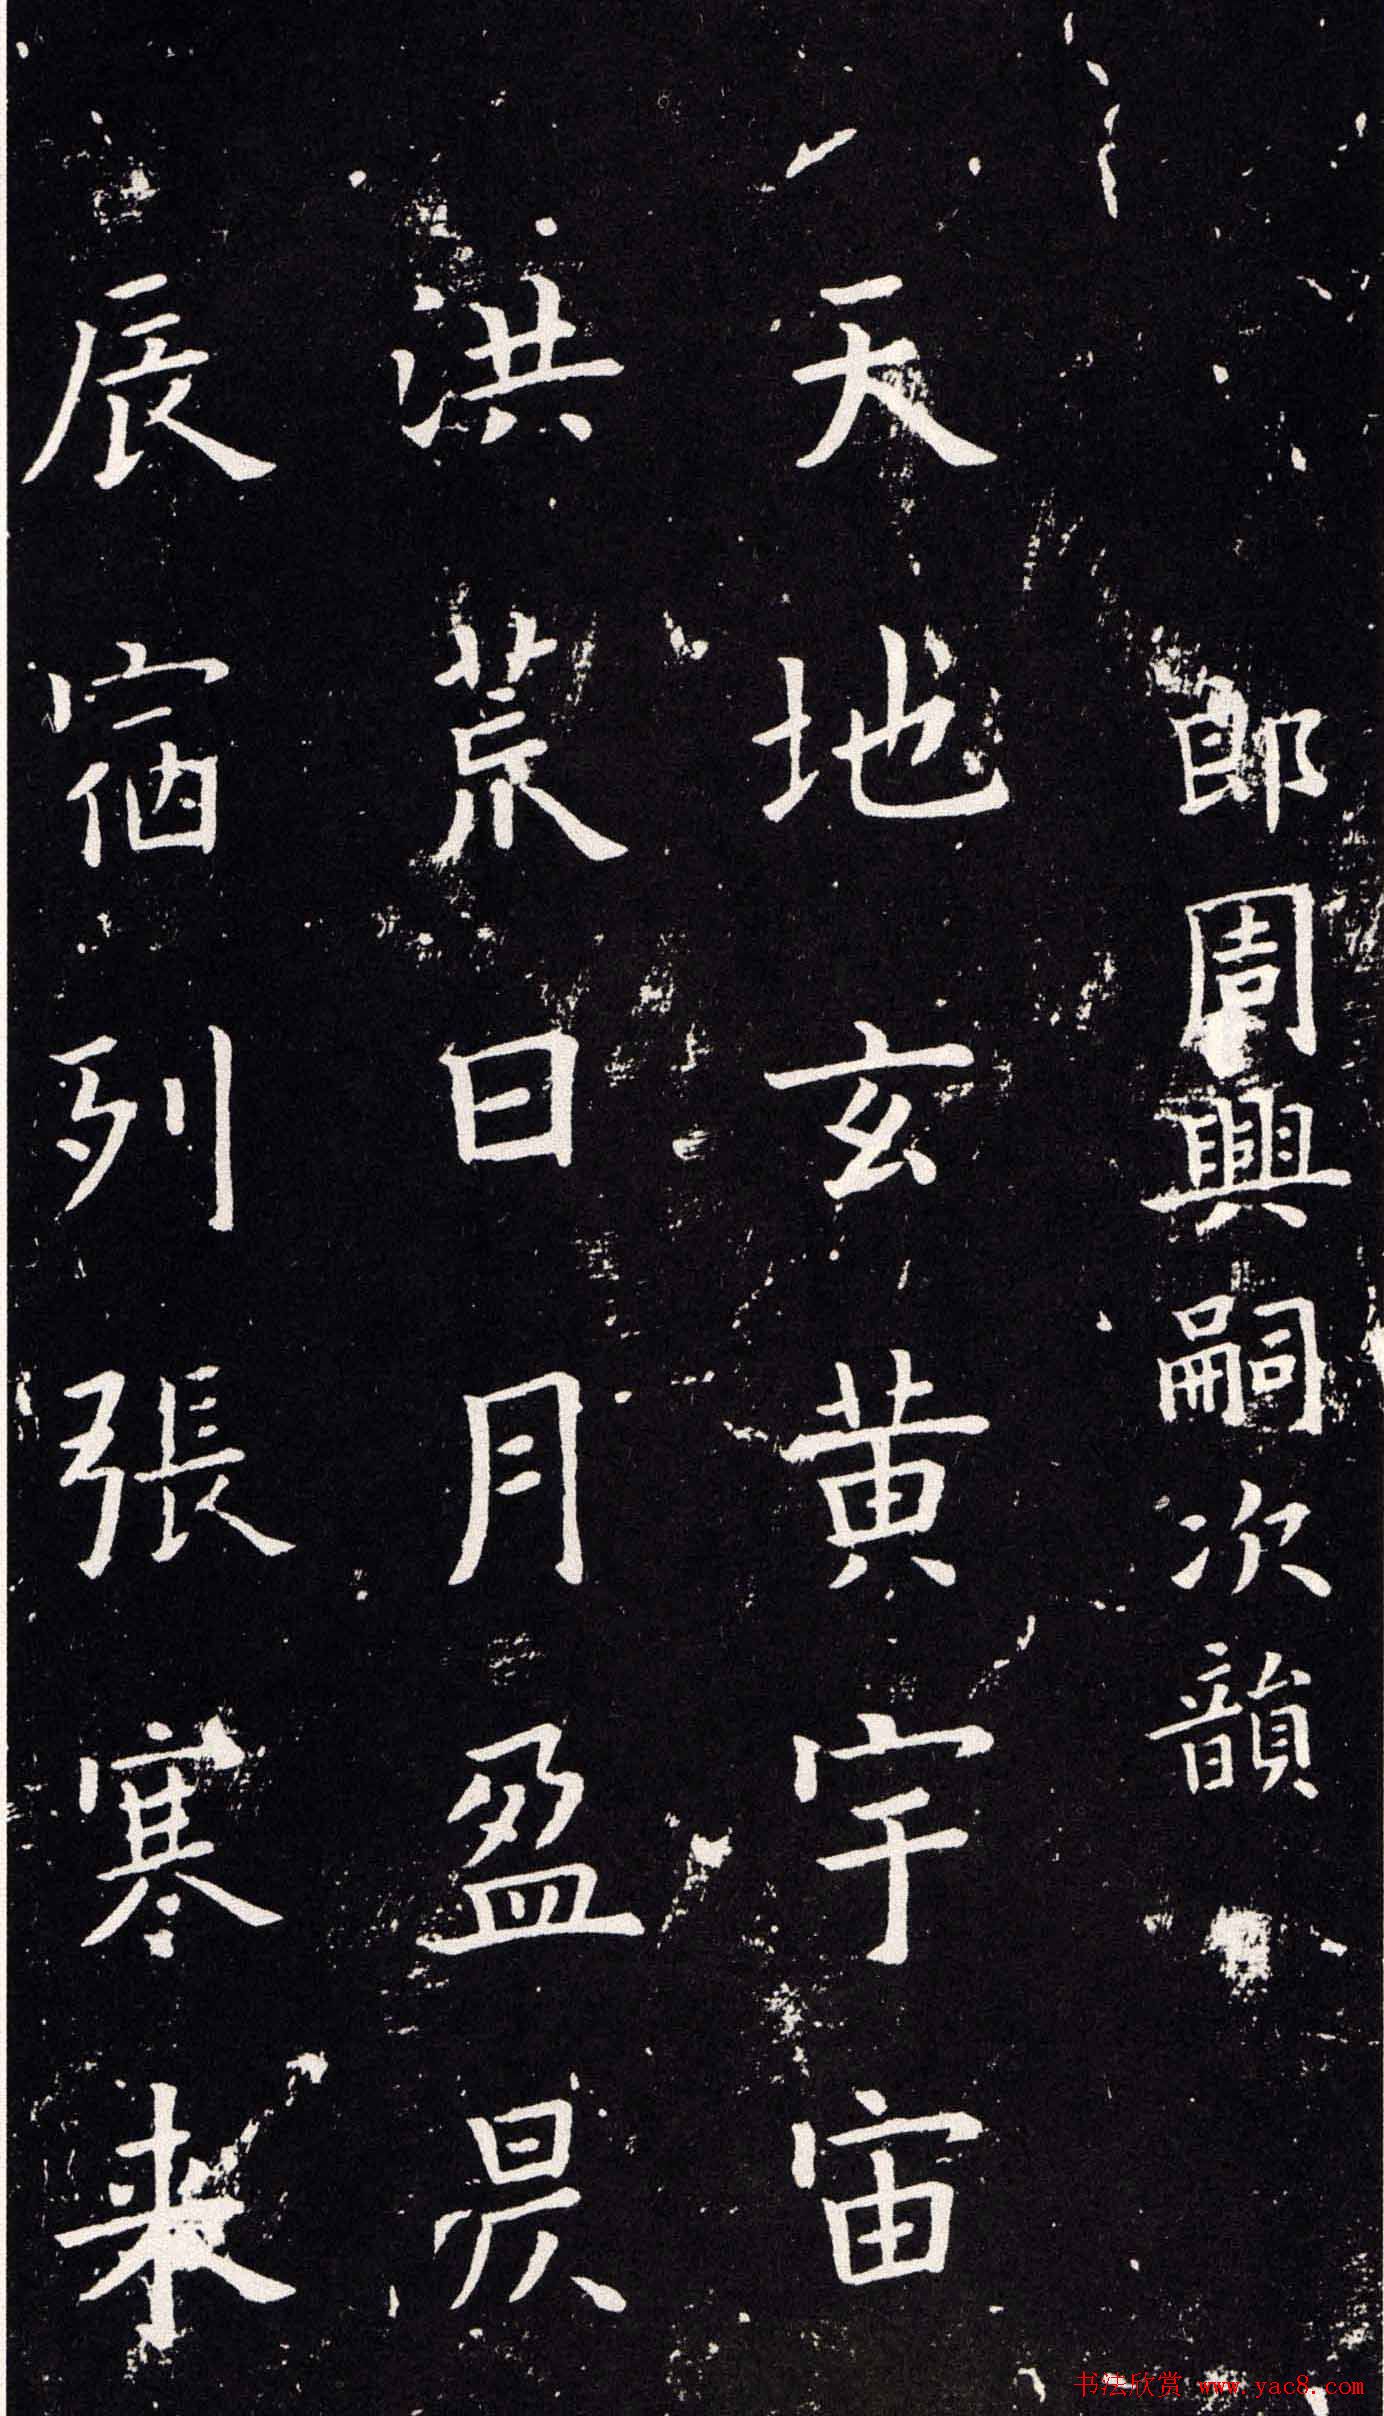 郎周興嗣次韻
天地玄黄宇宙
洪荒日月盈昃
辰宿列張寒来
书法欣赏 www.yac8.com